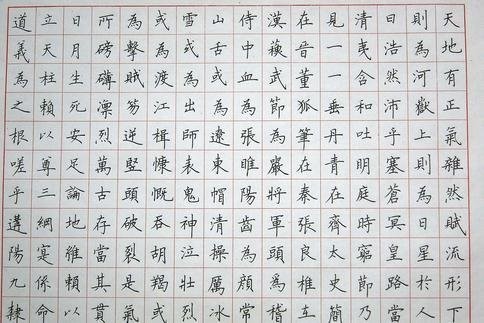 天地有正氣雜然賦流形下
則為河嶽上則為日星於人
曰浩然沛乎塞蒼冥皇路當
清夷含和吐明庭時窮節乃
見一一垂丹青在齊太史簡
在晉董狐筆在秦張良椎在
漢蘇武節為嚴將軍頭為稽
侍中血為張睢陽齒為顏常
山舌或為遼東帽清操厲冰
雪或為出師表鬼神泣壯烈
或為渡江楫慷慨吞胡羯或
為擊賊笏逆豎頭破裂是氣
所磅礴凜烈萬古存當其貫
日月生死安足論地維賴以
立天柱賴以尊三綱寔係命
道義為之根嗟乎遘陽九隸